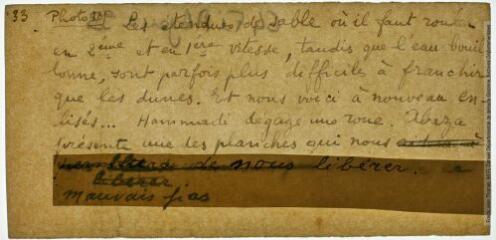 33. Photo Les étendues de sable où il faut rouler
en 2ème et en 1ère vitesse, tandis que l'eau bouil
lonne, sont parfois plus difficiles à franchir
que les dunes. Et nous voici à nouveau en-
lisés... Hammadi dégage une roue. Abaza
présente une des planches qui nous
de nous libérer.
liberer.
mauvais